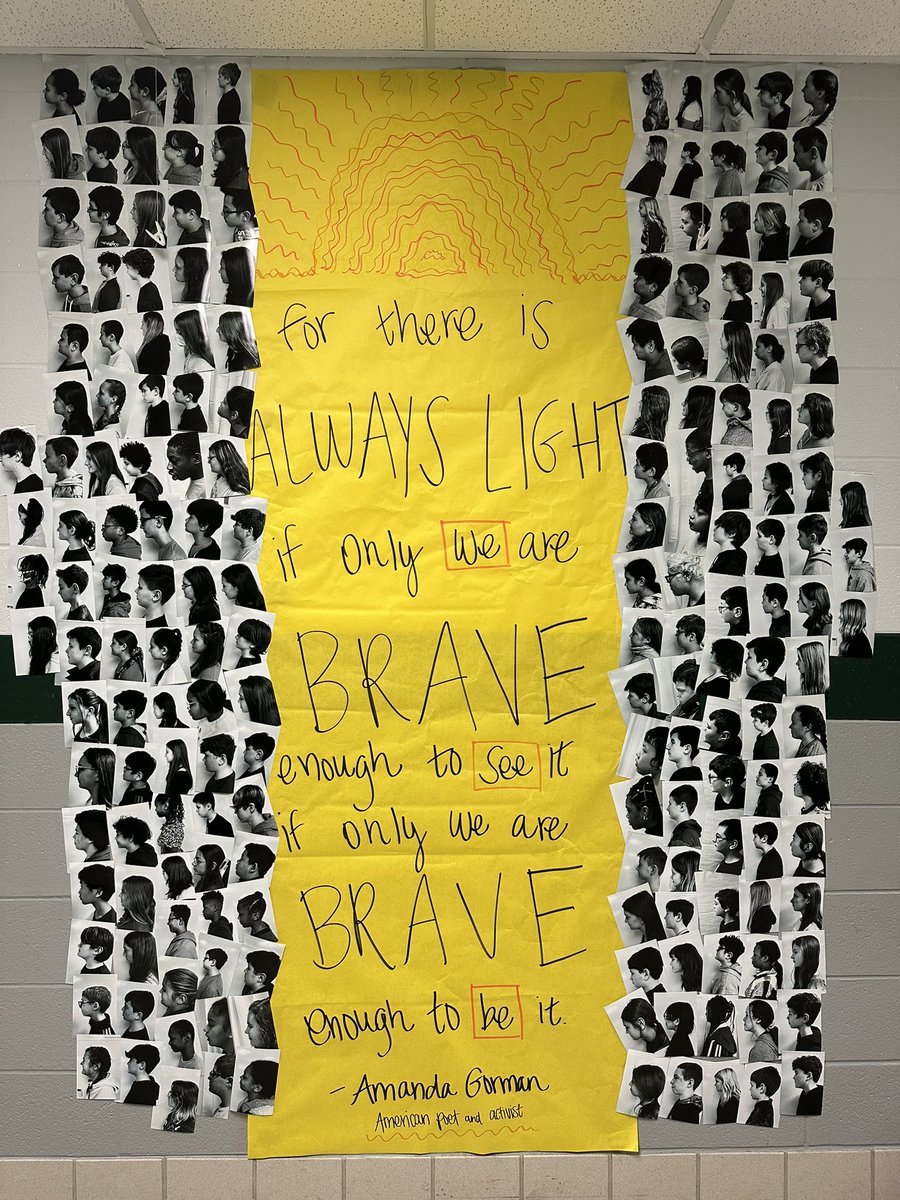 for there is
ALWAYS LIGHT
if only we are
BRAVE
enough to see it
if only we are
BRAVE
enough to be it.
- Amanda Gorman
American poet and activist